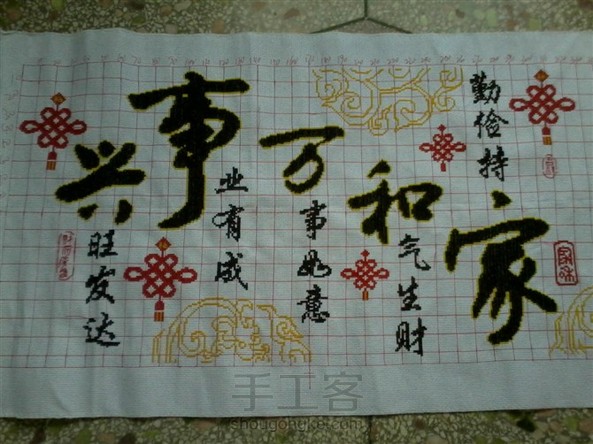 家和万事兴
勤俭持
气生财
事如意
业有成
旺发达
家和
手工客
shougongke.com